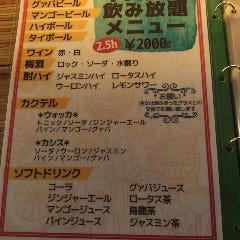 グァバビール
マンゴービール
ハイボール
タイボール
飲み放題
メニュー
2.5h ¥2000
ワイン 赤・白
梅酒 ロック・ソーダ・水割り
酎ハイ ジャスミンハイ ロータスハイ
ウーロンハイ レモンサワー
お願い
カクテル
*ウォッカ*
トニック/ソーダ/ジンジャーエール
パイン/マンゴー/グァバ
*カシス*
ソーダ/ウーロン/ジャスミン
パイン/マンゴー
ソフトドリンク
コーラ グァバジュース
ジンジャーエール ロータス茶
マンゴージュース 烏龍茶
パインジュース ジャスミン茶